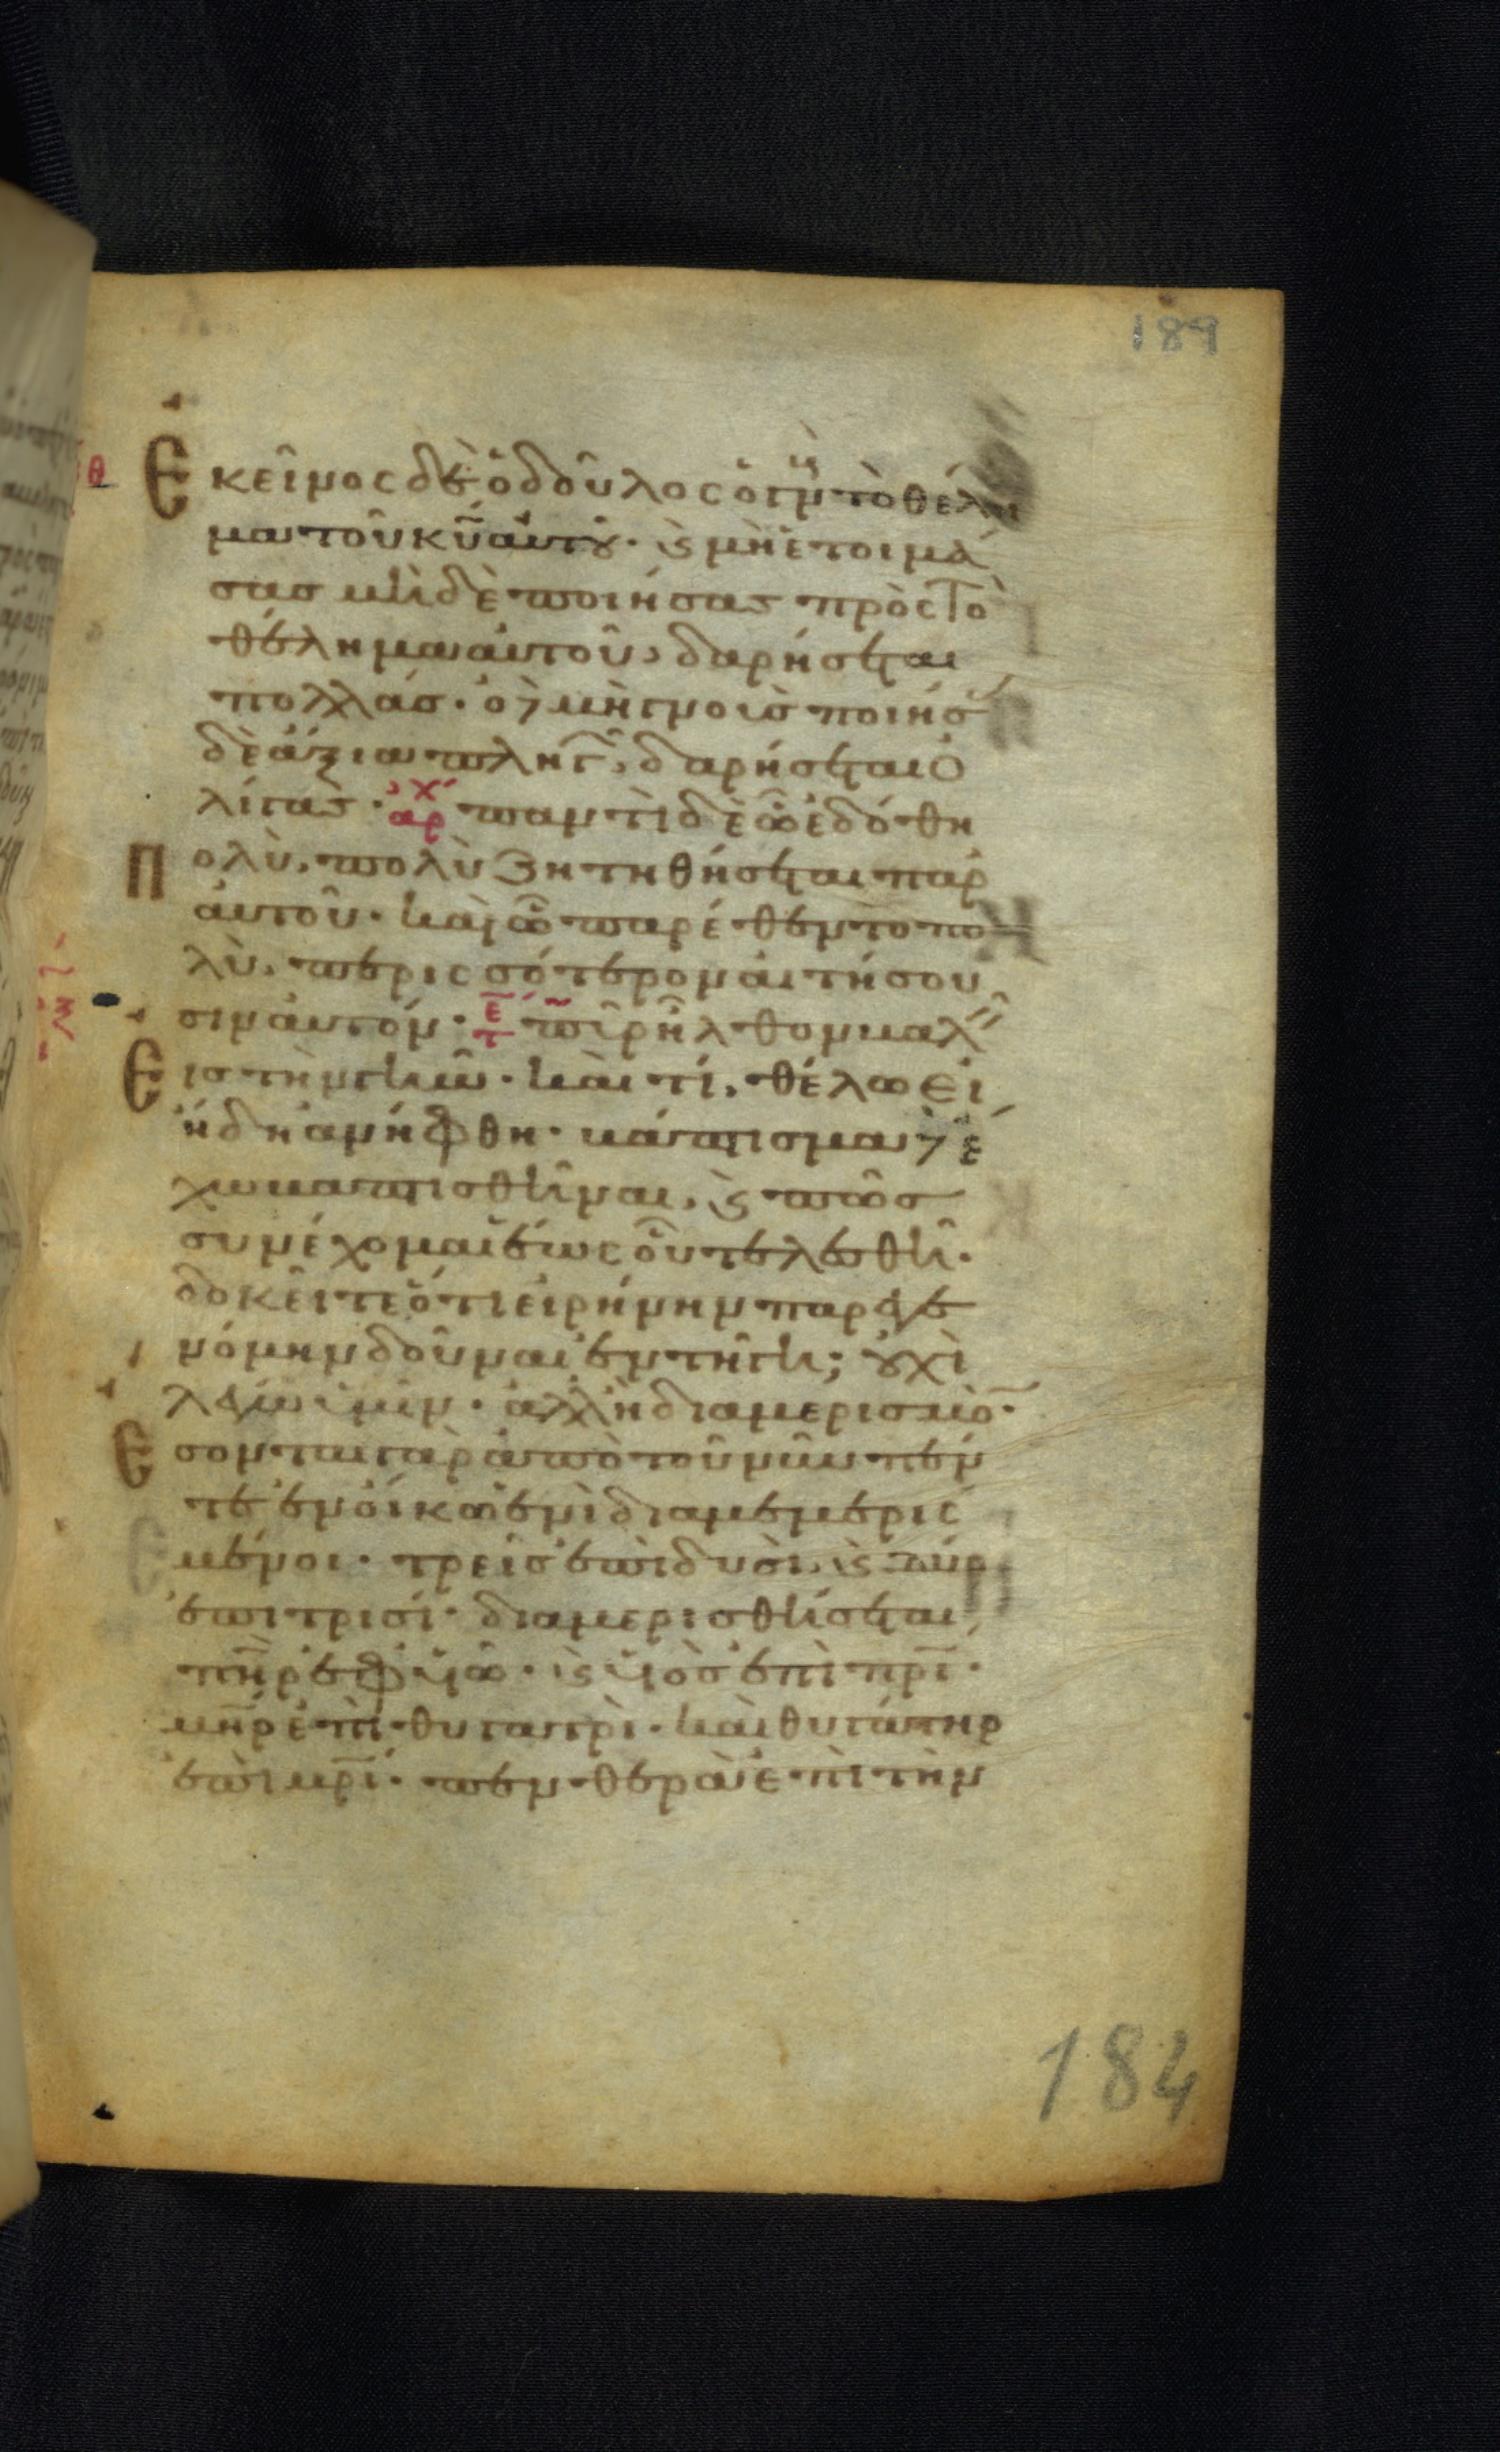 189
Ἐκεῖνος δὲ ὁ δοῦλος ὁ γν τὸ θέλη
μα τοῦ κῡ αὐτοῦ· ϗ μὴ ἑτοιμά
σας μηδὲ ποιήσας πρὸς τὸ
θέλημα αὐτοῦ, δαρήσεται
πολλάς· ὁ δὲ μὴ γνοὺς ποιήσ
δὲ ἄξια πληγ, δαρήσεται ὀ
λίγας· ἀρχ παντὶ δὲ ᾧ ἐδόθη
Πολὺ, πολὺ ζητηθήσεται παρ
αὐτοῦ· καὶ ᾧ παρέθεντο πο
λὺ, περισσότερον αἰτήσου
σιν αὐτόν· πῦρ ἦλθον βαλεῖ
Εἰς τὴν γῆν· καὶ τί, θέλω εἰ
ἤδη ἀνήφθη· βάπτισμα δὲ ἔ
χω βαπτισθῆναι, ϗ πῶς
συνέχομαι ἕως οὗ τελεσθῆ·
δοκεῖτε ὅτι εἰρήνην παρεγε
νόμην δοῦναι ἐν τῆ γῆ; οὐχὶ
λέγω ὑμῖν· ἀλλ ἢ διαμερισμὸ·
Ἔσονται γὰρ ἀπὸ τοῦ νῦν πέν
τε ἐν οἴκῳ ἑνὶ διαμεμερισ
μένοι· τρεῖς ἐπὶ δυσὶ, ϗ δύο
ἐπὶ τρισί· διαμερισθήσεται
πη̄ρ ἐφ υἱῷ· ϗ υἱὸς ἐπὶ πρ̄ι·
μη̄ρ ἐπὶ θυγατρὶ· καὶ θυγάτηρ
ἐπὶ μρ̄ι· πενθερὰ ἐπὶ τὴν
184